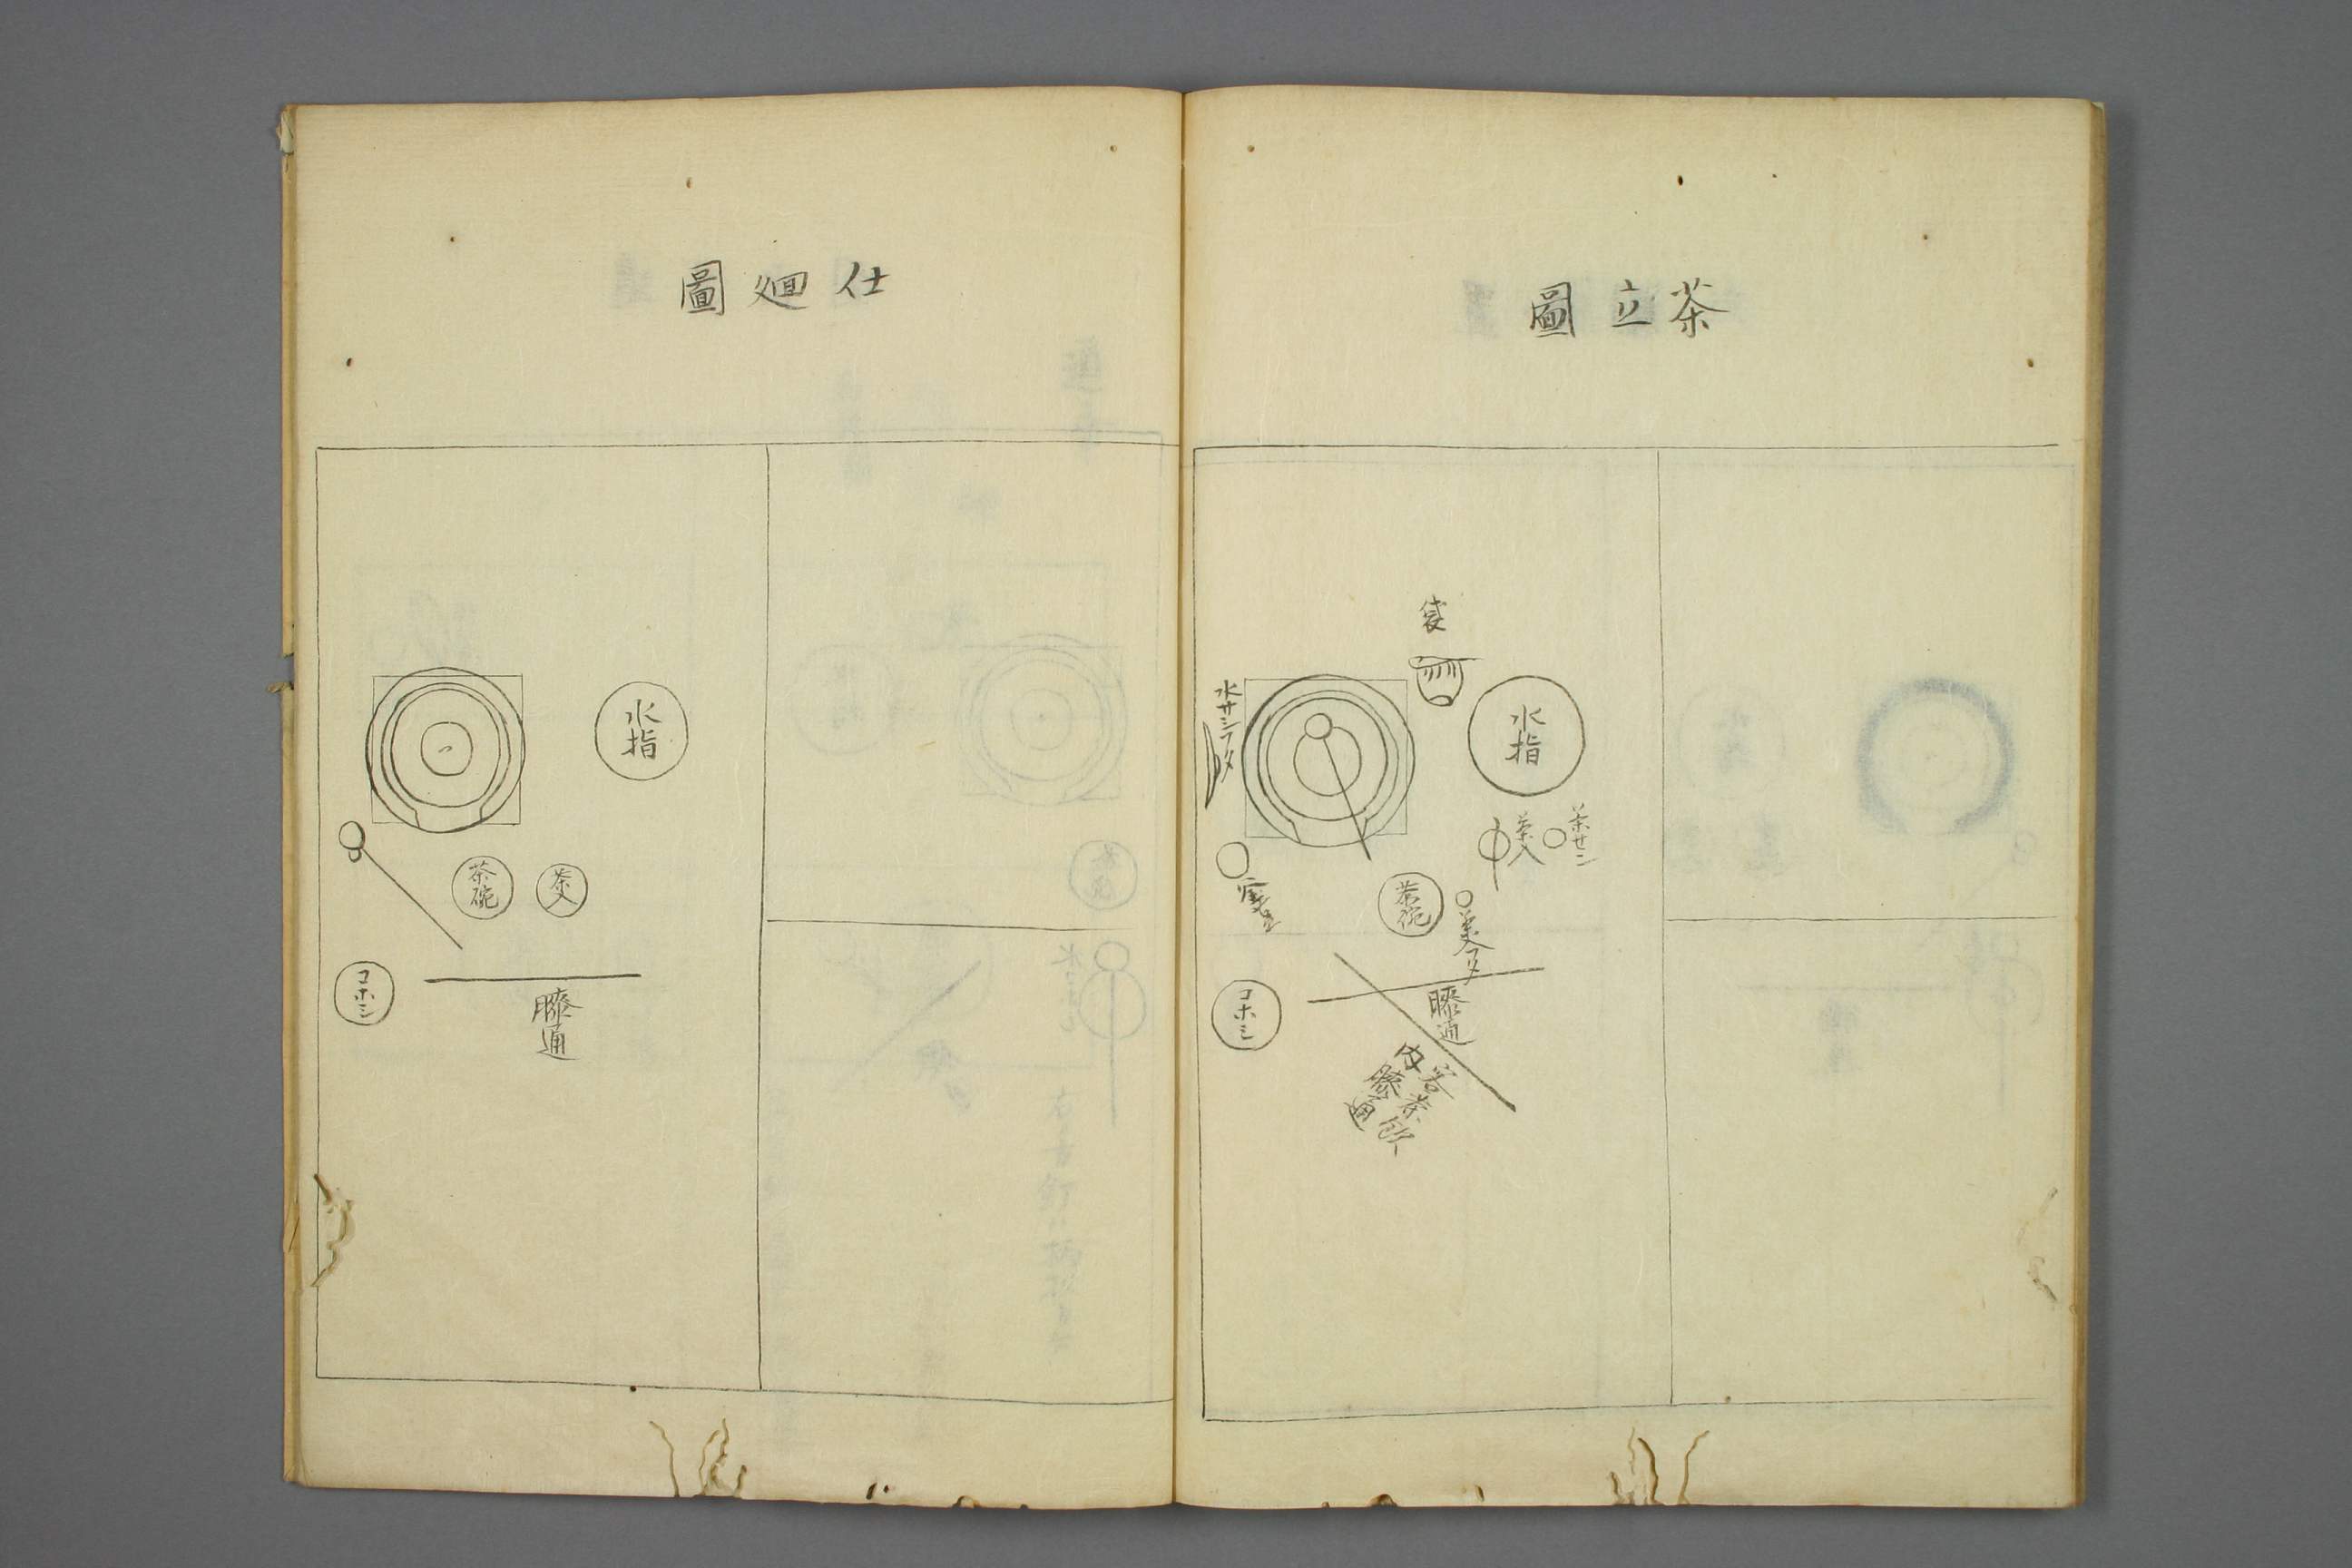 茶立圖
袋
水指
水サシフタ
茶入
茶せン
茶碗
茶入フタ
コホシ
膝通
客茶飲
内膝通
仕廻圖
水指
茶碗
茶入
コホシ
膝通